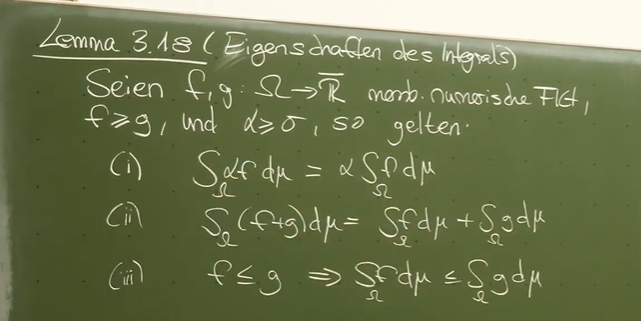 Lemma 3.18 (Eigenschaften des Integrals)
Seien f,g: Ω → ℝ̅ messb. numerische Fkt,
f ≥ g, und α ≥ 0, so gelten:
(i) ∫_Ω αf dμ = α ∫_Ω f dμ
(ii) ∫_Ω (f+g) dμ = ∫_Ω f dμ + ∫_Ω g dμ
(iii) f ≤ g ⇒ ∫_Ω f dμ ≤ ∫_Ω g dμ